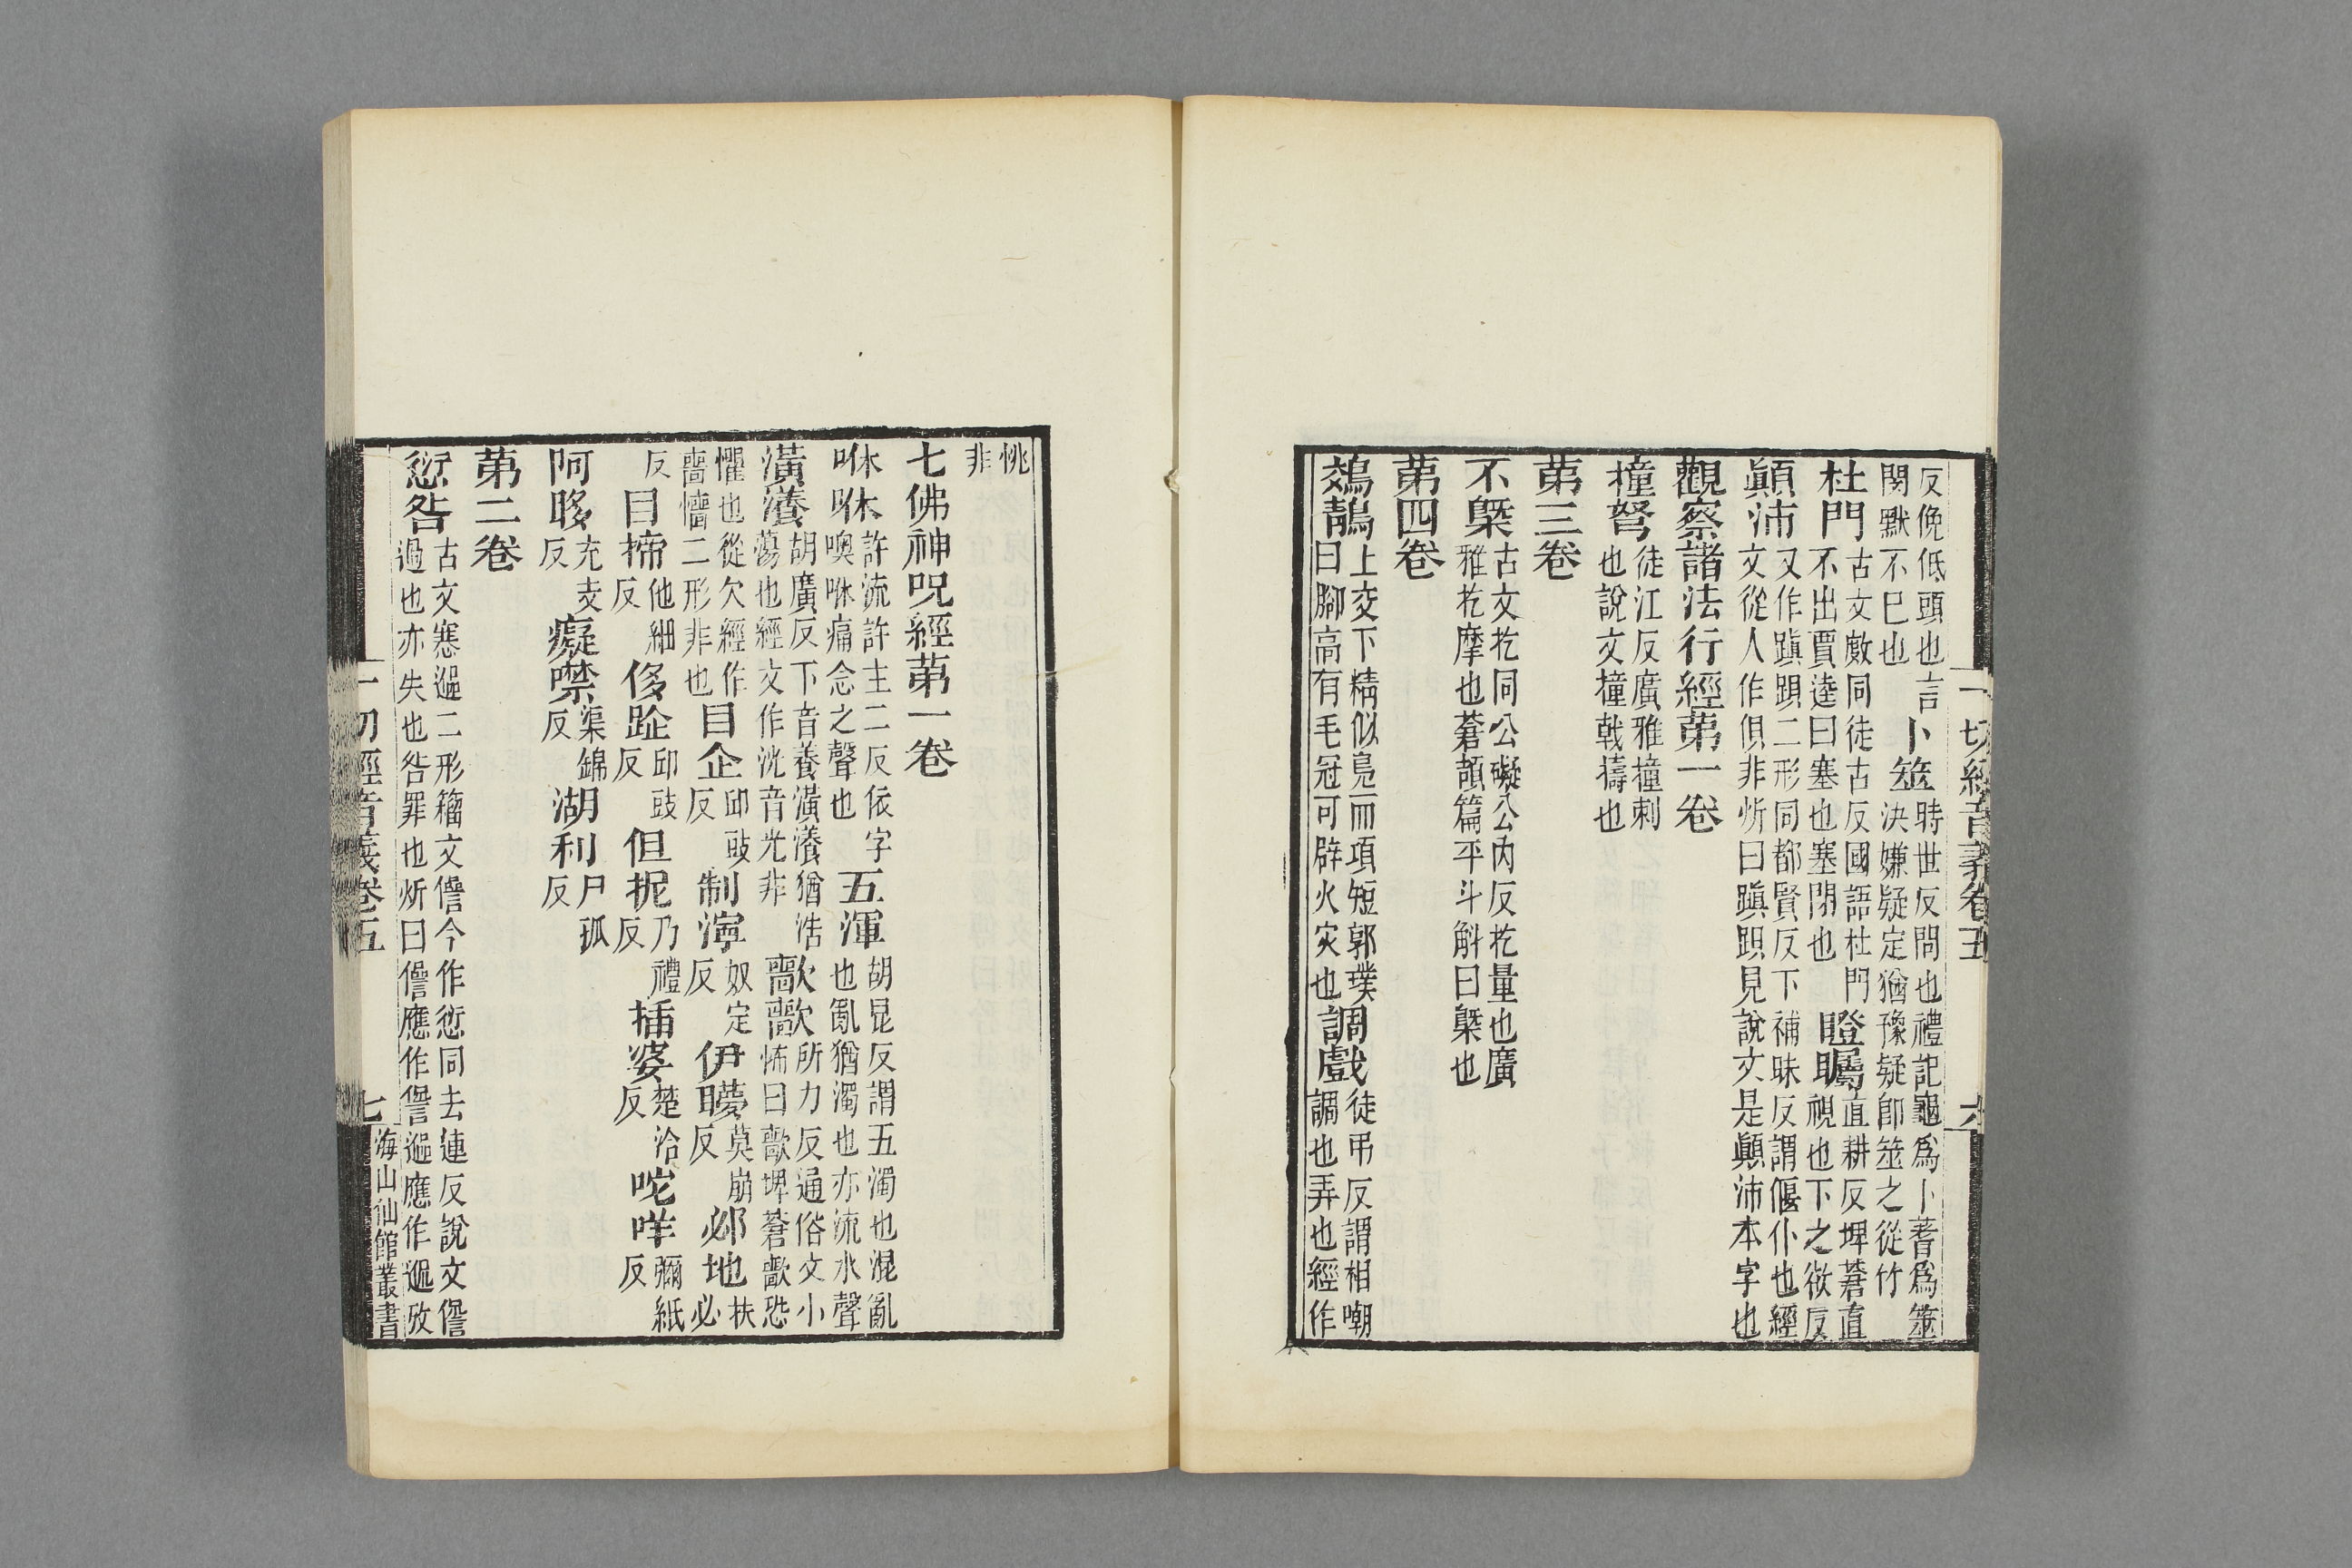 反俛低頭也言
閡默不巳也
卜筮
時世反問也禮記龜爲卜蓍爲筮
決嫌疑定猶豫疑卽筮之從竹
杜門
古文敷同徒古反國語杜門
不出賈逵曰塞也塞閉也
瞪矚
直耕反埤蒼直
視也下之欲反
顚沛
又作蹎䠄二形同都賢反下補昧反謂偃仆也經
文從人作傎非斦曰蹎䠄見說文是顚沛本字也
觀察諸法行經第一卷
撞弩
徒江反廣雅撞刺
也說文撞戟擣也
第三卷
不槩
古文扢同公礙公內反扢量也廣
雅扢摩也蒼頡篇平斗斛曰槩也
第四卷
鵁鶄
上交下精似鳧而項短郭璞
曰腳高有毛冠可辟火灾也
調戲
徒弔反謂相嘲
調也弄也經作
一切經音義卷五
六
恌
非
七佛神呪經第一卷
咻咻
許流許主二反依字
噢咻痛念之聲也
五渾
胡昆反謂五濁也混亂
也亂猶濁也亦流水聲
潢瀁
胡廣反下音養潢瀁猶浩
蕩也經文作洸音光非
歃歃
所力反通俗文小
怖曰歃埤蒼歃恐
懼也從欠經作
嗇懎二形非也
目企
邱豉
反
制濘
奴定
反
伊矇
莫崩
反
郯地
扶必
反
目揥
他細
反
侈跐
邱豉
反
但抳
乃禮
反
插婆
楚洽
反
咜哶
彌紙
反
阿眵
充支
反
癡噤
渠錦
反
湖利
尸孤
反
第二卷
愆咎
古文寋𨗿二形籀文𠎝今作愆同去連反說文𠎝
過也亦失也咎罪也斦曰𠎝應作諐𨗿應作𨓈攷
一切經音義卷五
七
海山仙館叢書